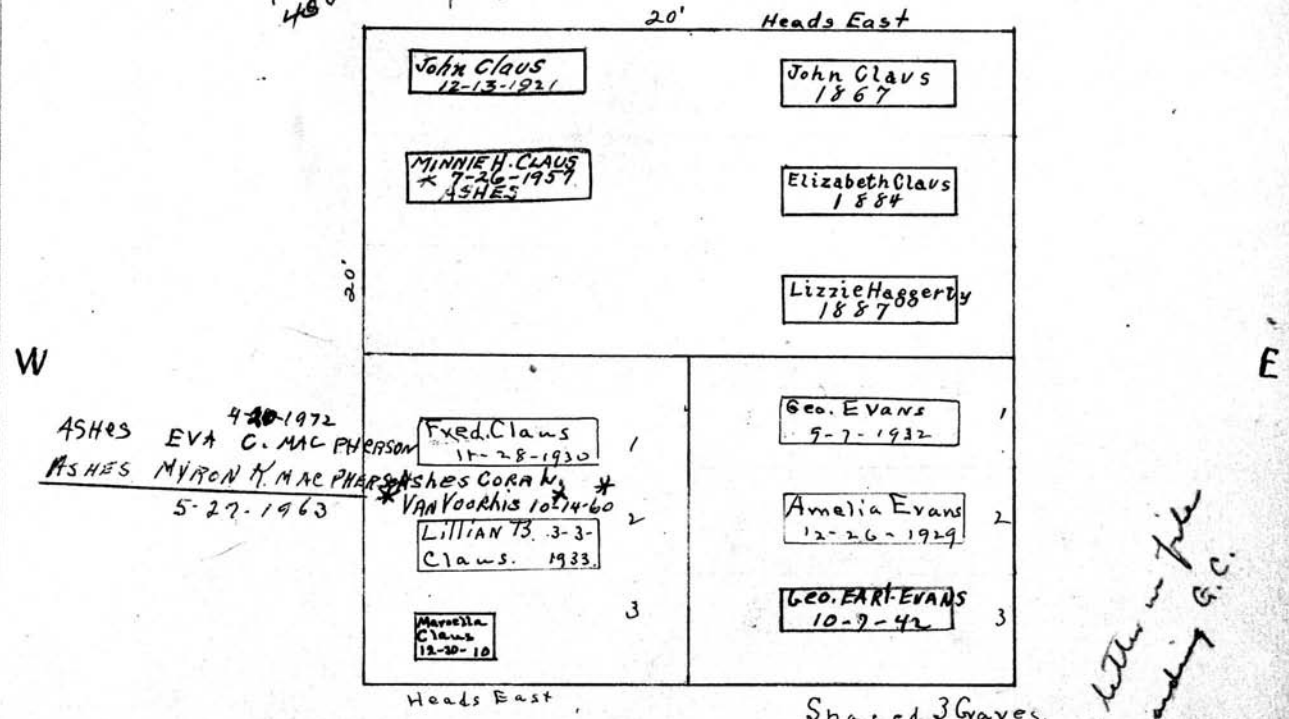 20' Heads East
John Claus
12-13-1921
John Claus
1867
MINNIE H. CLAUS
* 7-26-1957
ASHES
Elizabeth Claus
1884
20'
Lizzie Haggerty
1887
W
E
4-20-1972
ASHES EVA C. MAC PHERSON
ASHES MYRON K. MAC PHERSON
5-27-1963
Fred. Claus
11-28-1930
1
Ashes CORA W. *
* VAN VOORHIS 10-14-60
LILLIAN B. 3-3-
Claus. 1933.
2
Marcella
Claus
12-20-10
3
Geo. Evans
9-7-1932
1
Amelia Evans
12-26-1929
2
GEO. EARL EVANS
10-9-42
3
Heads East
3 Graves
letter in file
G.C.